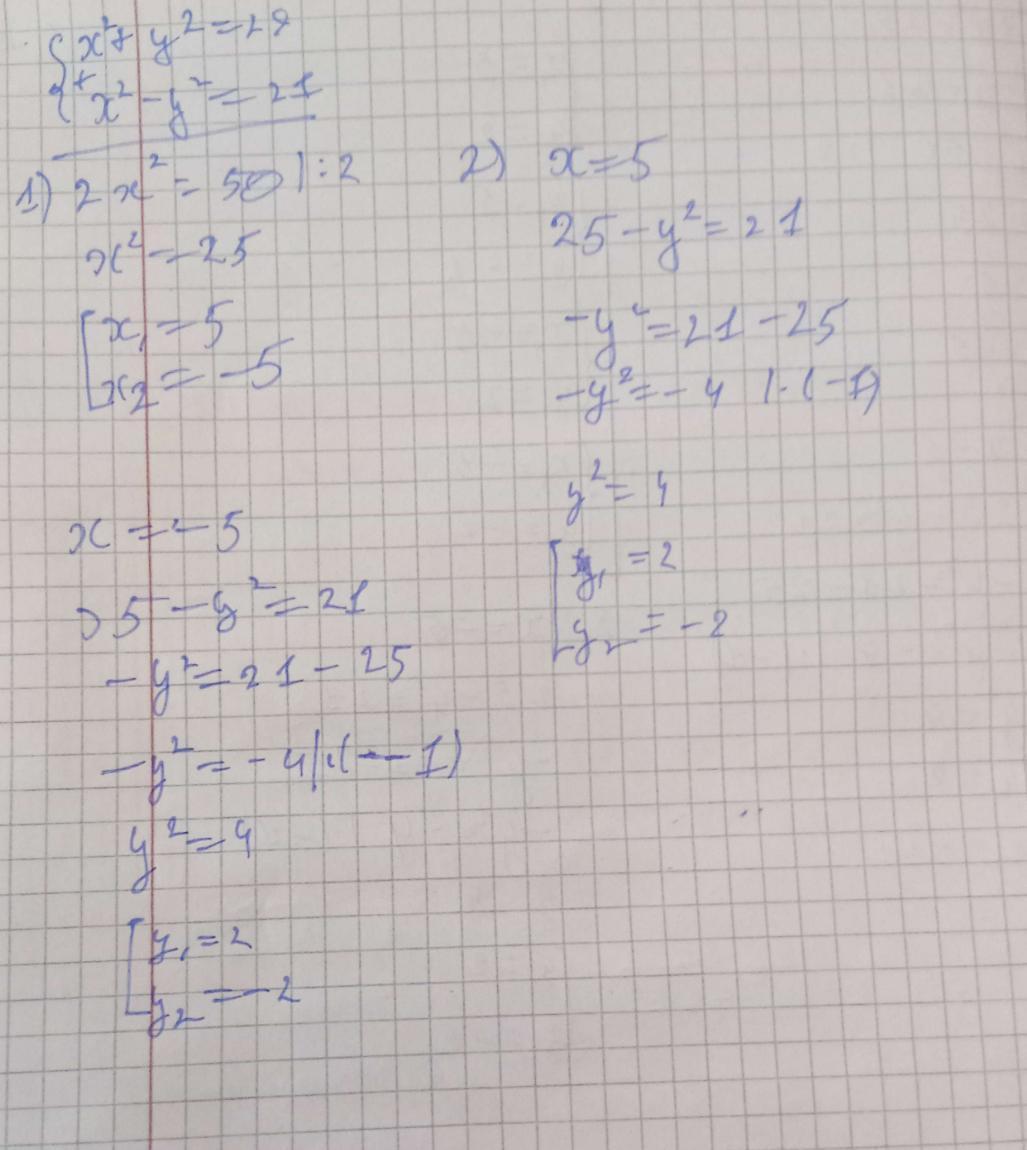 x² + y² = 29
+ x² - y² = 21
1) 2x² = 50 |:2
x² = 25
x₁ = 5
x₂ = -5
2) x = 5
25 - y² = 21
-y² = 21 - 25
-y² = -4 |·(-1)
y² = 4
y₁ = 2
y₂ = -2
x = -5
25 - y² = 21
-y² = 21 - 25
-y² = -4 |·(-1)
y² = 4
y₁ = 2
y₂ = -2